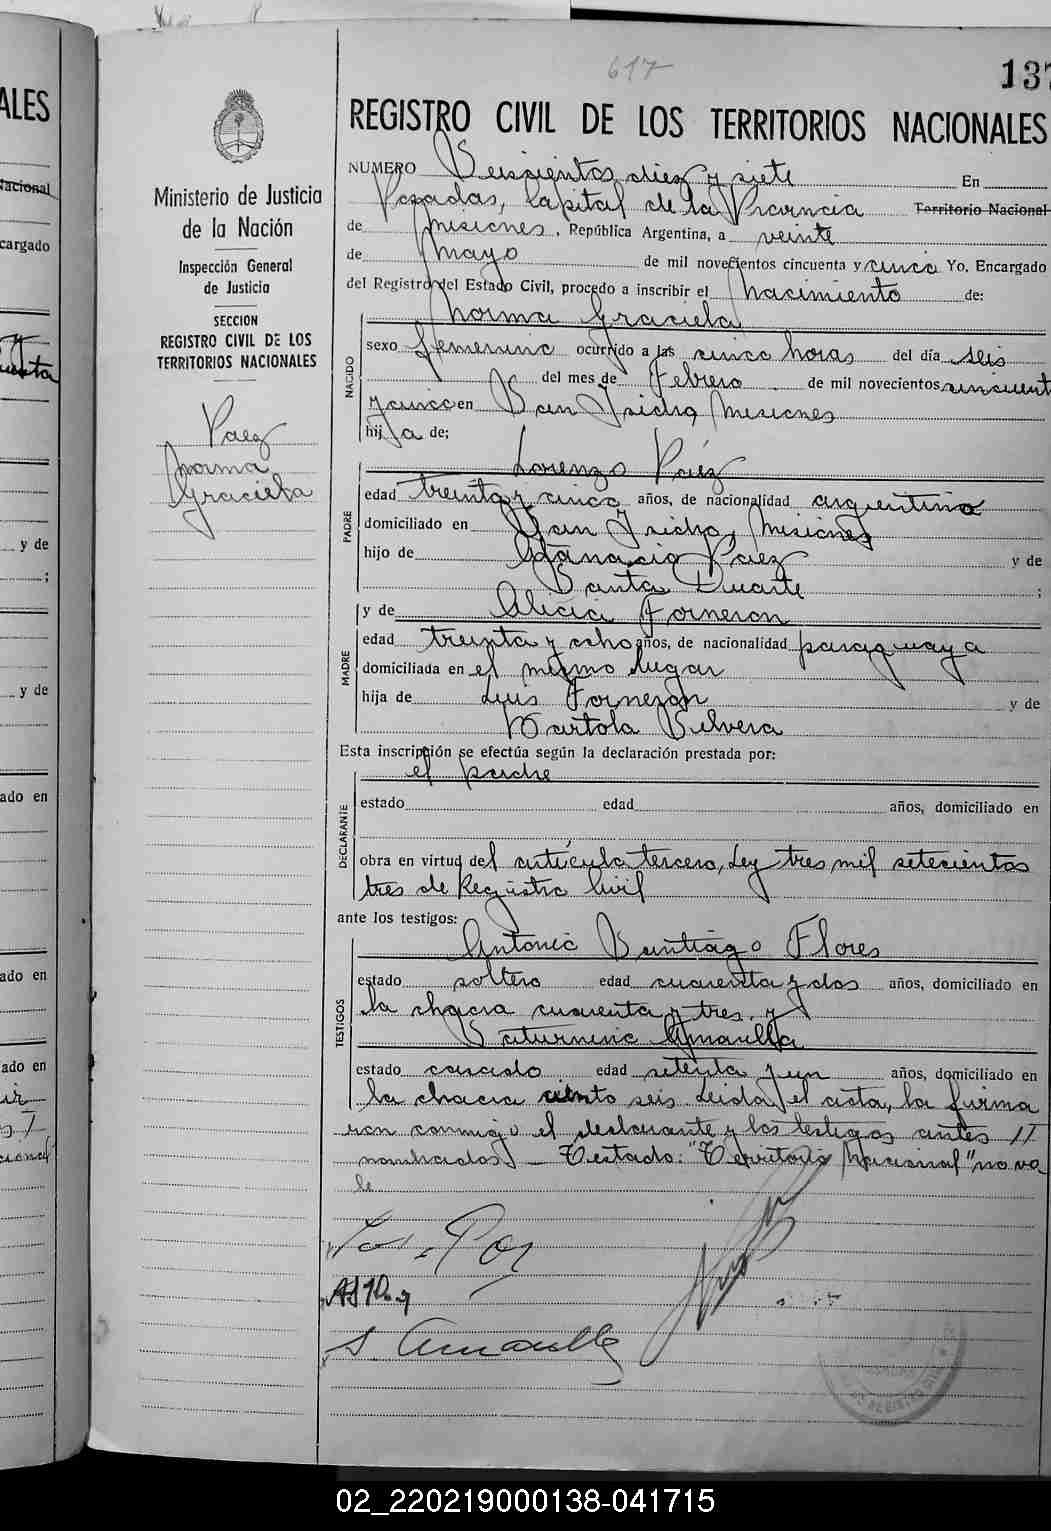 617
137
REGISTRO CIVIL DE LOS TERRITORIOS NACIONALES
NUMERO Seiscientos diez y siete En
Posadas, Capital de la Provincia Territorio Nacional
de Misiones, República Argentina, a veinte
de Mayo de mil novecientos cincuenta y cinco Yo, Encargado
del Registro del Estado Civil, procedo a inscribir el Nacimiento de:
Norma Graciela
NACIDO
sexo femenino ocurrido a las cinco horas del día seis
del mes de Febrero de mil novecientos cincuent
y cinco en San Isidro, Misiones
hija de;
Lorenzo Páez
PADRE
edad treinta y cinco años, de nacionalidad argentina
domiciliado en San Isidro, Misiones
hijo de Atanacio Paez y de
Santa Duarte ;
y de Alicia Forneron
MADRE
edad treinta y ocho años, de nacionalidad paraguaya
domiciliada en el mismo lugar
hija de Luis Forneron y de
Bartola Silvera
Esta inscripción se efectúa según la declaración prestada por:
el padre
DECLARANTE
estado edad años, domiciliado en
obra en virtud del artículo tercero, Ley tres mil setecientos
tres de Registro Civil
ante los testigos:
Antonio Santiago Flores
TESTIGOS
estado soltero edad cuarenta y dos años, domiciliado en
la chacra cuarenta y tres. y
Saturnino Amarilla
estado casado edad setenta y un años, domiciliado en
la chacra ciento seis Leida el acta, la firma
ron conmigo el declarante y los testigos antes
nombrados — Testado: "Territorio Nacional" no va
le
S. Amarilla
Ministerio de Justicia
de la Nación
Inspección General
de Justicia
SECCION
REGISTRO CIVIL DE LOS
TERRITORIOS NACIONALES
Paez
Norma
Graciela
ALES
Nacional
cargado
y de
;
y de
ado en
ado en
ado en
02_220219000138-041715